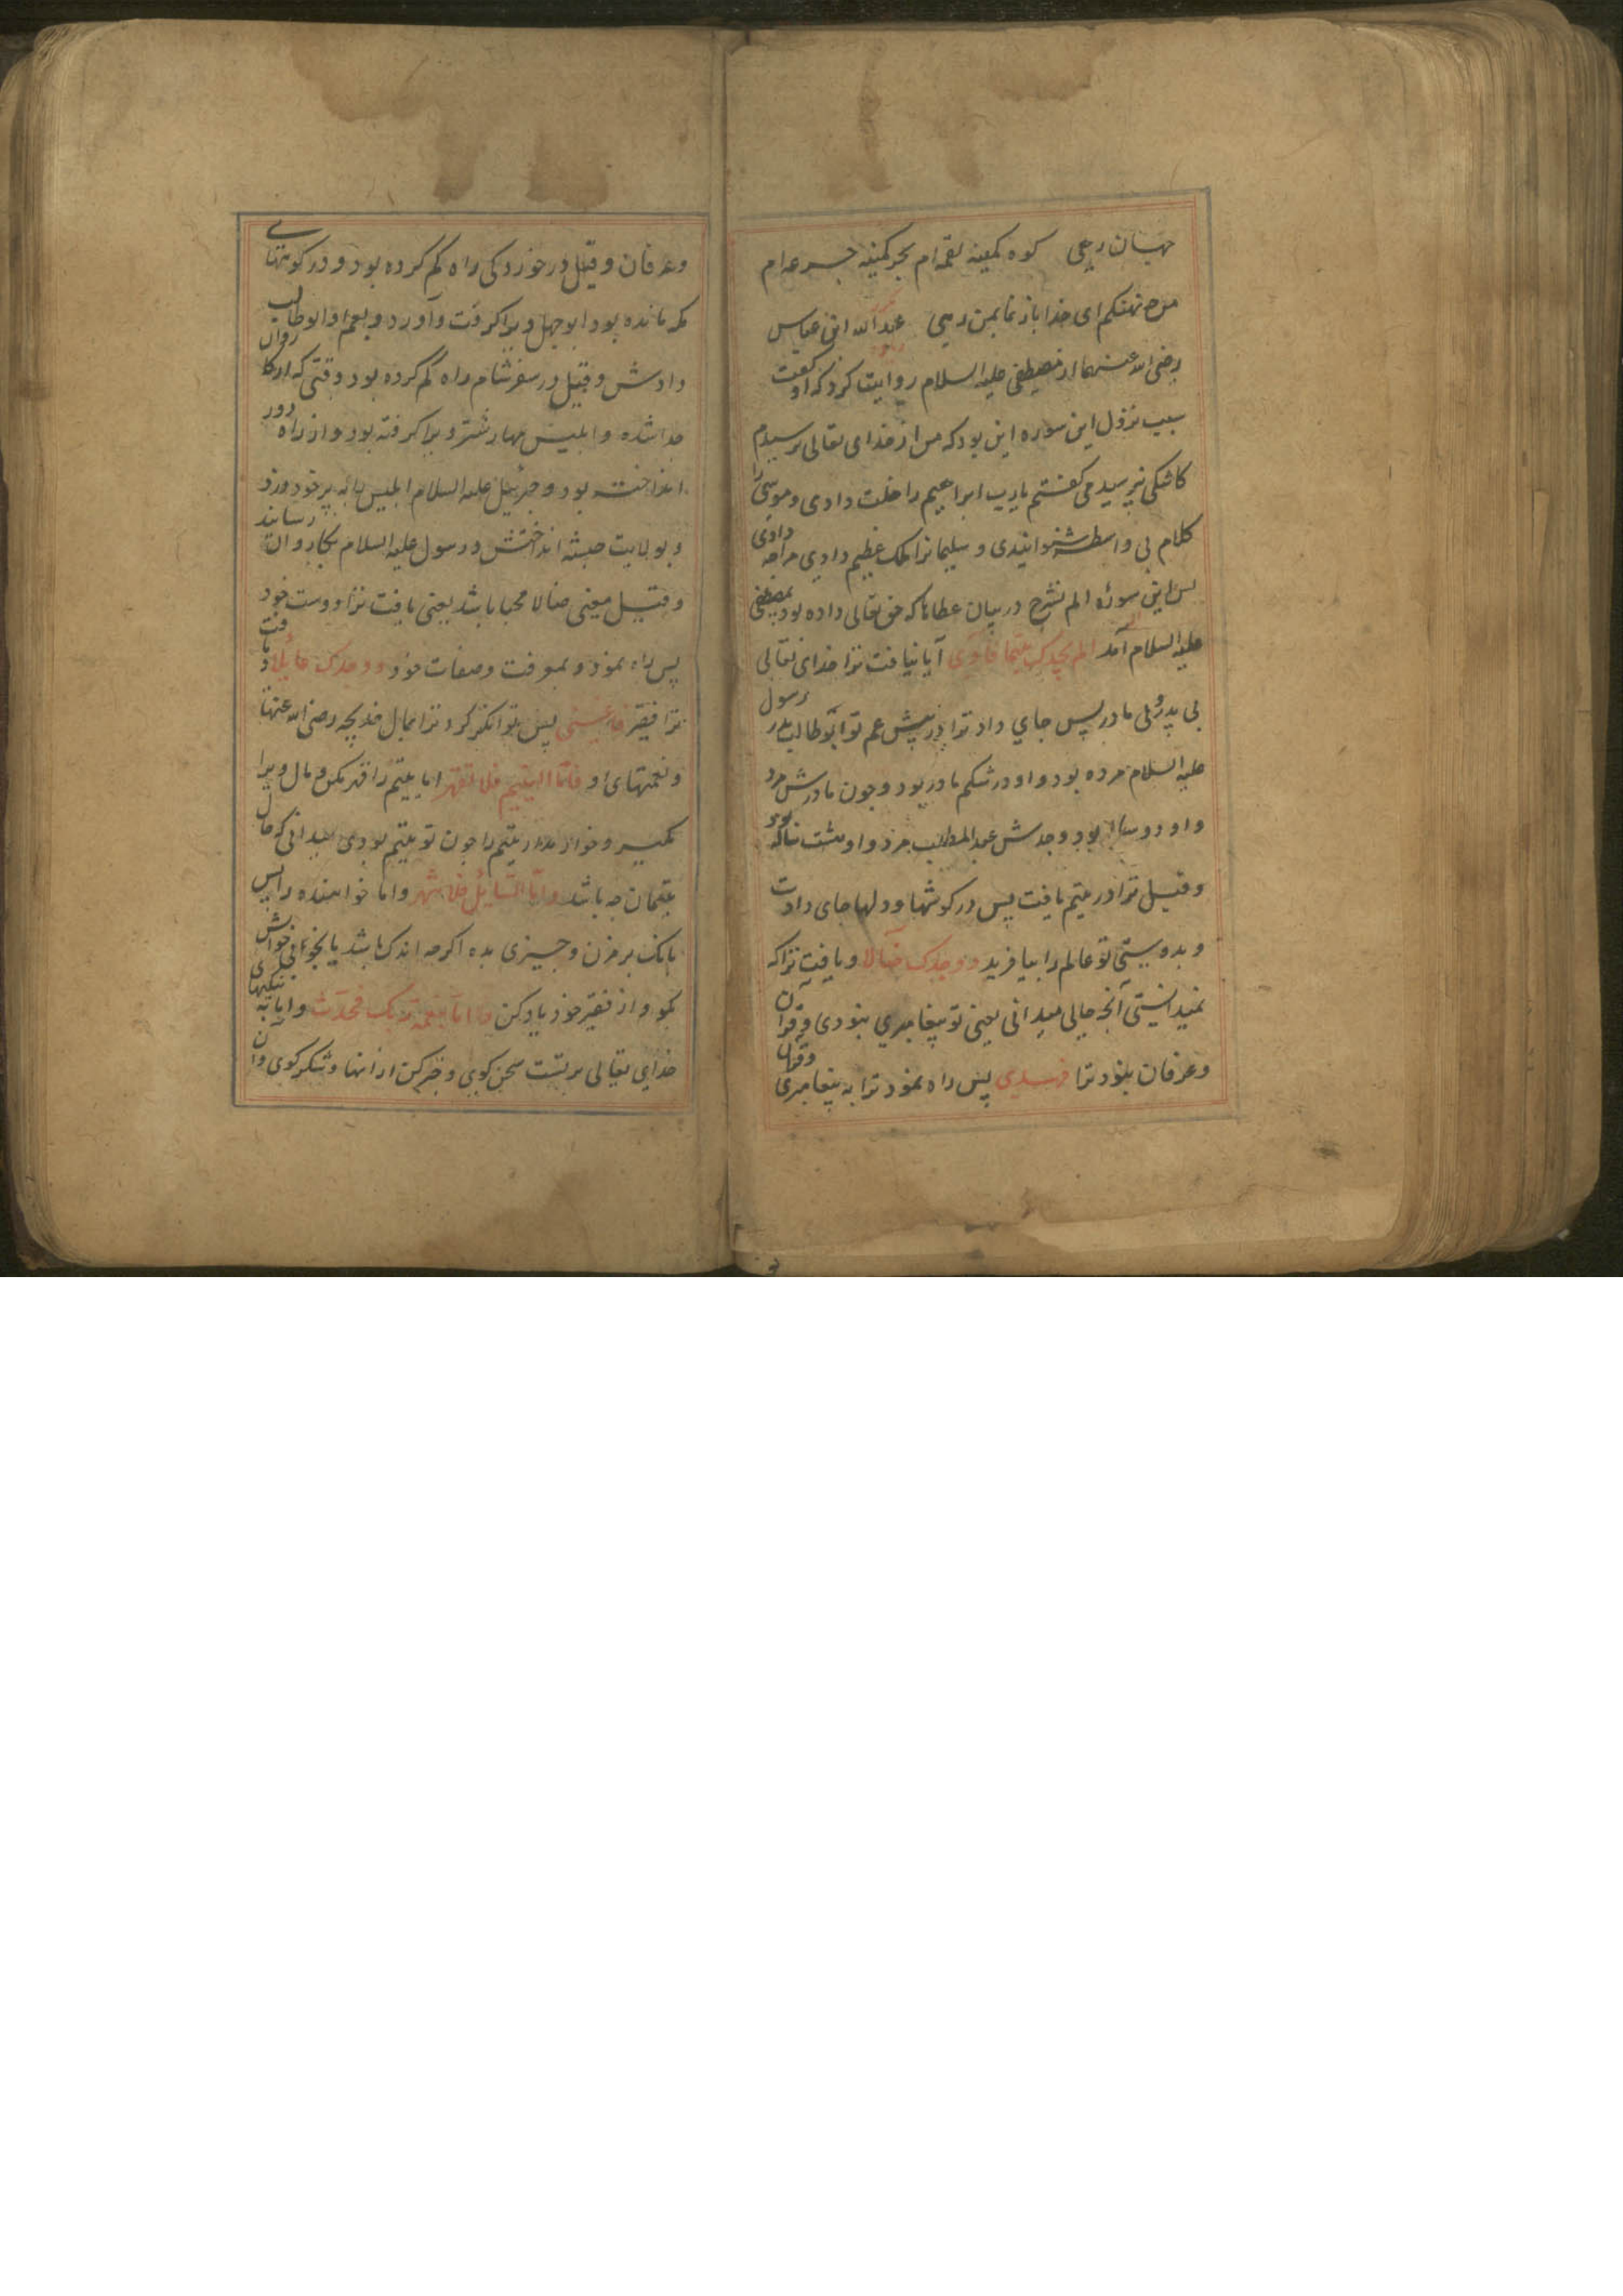 جهان رهی کوه کمینه لقمه‌ام بحر کمینه جرعه‌ام
من چه نهنگم ای خدا باز نما بمن رهی عبدالله ابن عباس
رضی الله عنهما از مصطفی علیه السلام روایت کرد که او گفت
سبب نزول این سوره این بود که من از خدای تعالی پرسیدم
کاشکی نپرسیدمی گفتم یارب ابراهیم را خلت دادی و موسی را
کلام بی واسطه شنوانیدی و سلیمانرا ملک عظیم دادی مرا چه دادی
پس این سوره الم نشرح در بیان عطاها که حق تعالی داده بود بمصطفی
علیه السلام آمد الم یجدک یتیما فآوی آیا نیافت ترا خدای تعالی
بی پدر و بی مادر پس جای داد ترا در پیش عم تو ابوطالب پدر رسول
علیه السلام مرده بود و او در شکم مادر بود و چون مادرش مرد
و او دو ساله بود و جدش عبدالمطلب مرد و او هشت ساله بود
و قیل ترا در یتیم یافت پس در گوشها و دلها جای دادت
و بدوستی تو عالم را بیافرید ووجدک ضالا و یافت ترا که
نمیدانستی آنچه حالی میدانی یعنی تو پیغامبری نبودی و قرآن
و عرفان نبود ترا فهدی پس راه نمود ترا به پیغامبری و قرآن
و عرفان و قیل در خوردکی راه گم کرده بود و در کوههای
مکه مانده بود ابوجهل ویرا گرفت و آورد و بعم او ابوطالب
دادش و قیل در سفر شام راه گم کرده بود وقتی که از کاروان
جدا شده و ابلیس مهار شتر ویرا گرفته بود و از راه دور
انداخته بود و جبرئیل علیه السلام ابلیس را به پر خود زد
و بولایت حبشه انداختش و رسول علیه السلام بکاروان رساند
و قیل معنی ضالا محبا باشد یعنی یافت ترا دوست خود
پس راه نمود و بمعرفت و صفات خود ووجدک عائلا و یافت
ترا فقیر فاغنی پس توانکر کرد ترا بمال خدیجه رضی الله عنها
و نعمتهای او فاما الیتیم فلا تقهر اما یتیم را قهر مکن و مال ویرا
مگیر و خوار مدار یتیم را چون تو یتیم بودی میدانی که حال
یتیمان چه باشد واما السائل فلا تنهر واما خواهنده را پس
بانک بر مزن و چیزی بده اکرچه اندک باشد یا بخوش
بگو و از فقیر خود یاد کن واما بنعمة ربک فحدث واما به نیکیهای
خدای تعالی بر تست سخن گوی و خبر کن از آنها و شکر گوی و آن